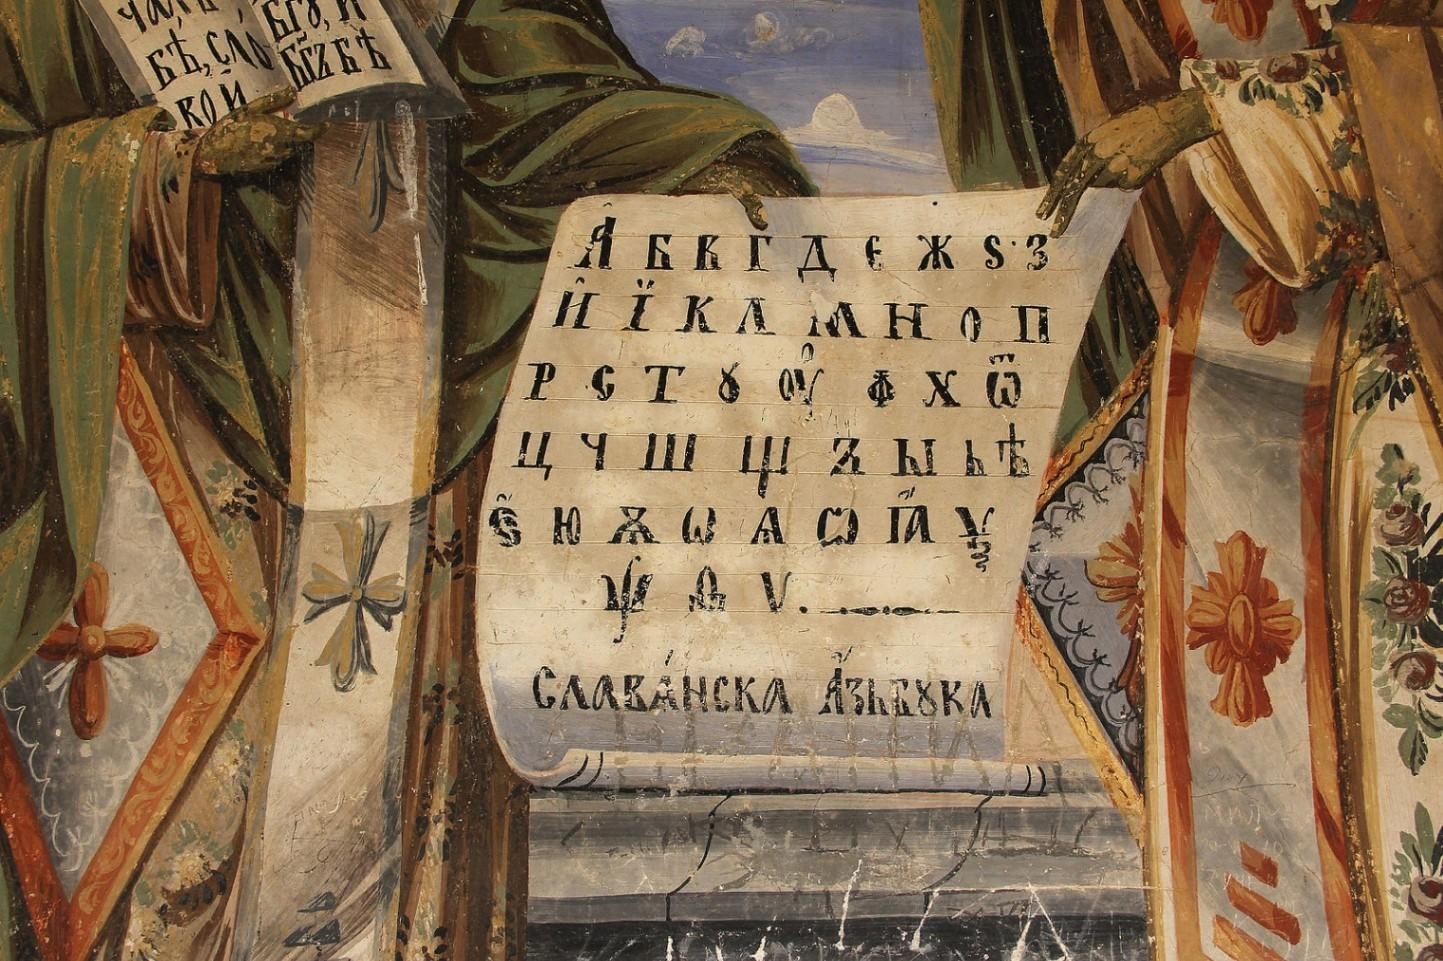 чалѣ
бѣ, сло
ко и
бг҃у, и
бг҃ъ бѣ
А Б В Г Д Є Ж Ѕ З
И Ї К Л М Н О П
Р С Т Ꙋ Оу Ф Х Ѿ
Ц Ч Ш Щ Ъ Ы Ь Ѣ
Ю Ѫ Ѡ Ѧ
Ѱ Ѵ.
Славѧ́нска А҆́зьбꙋка